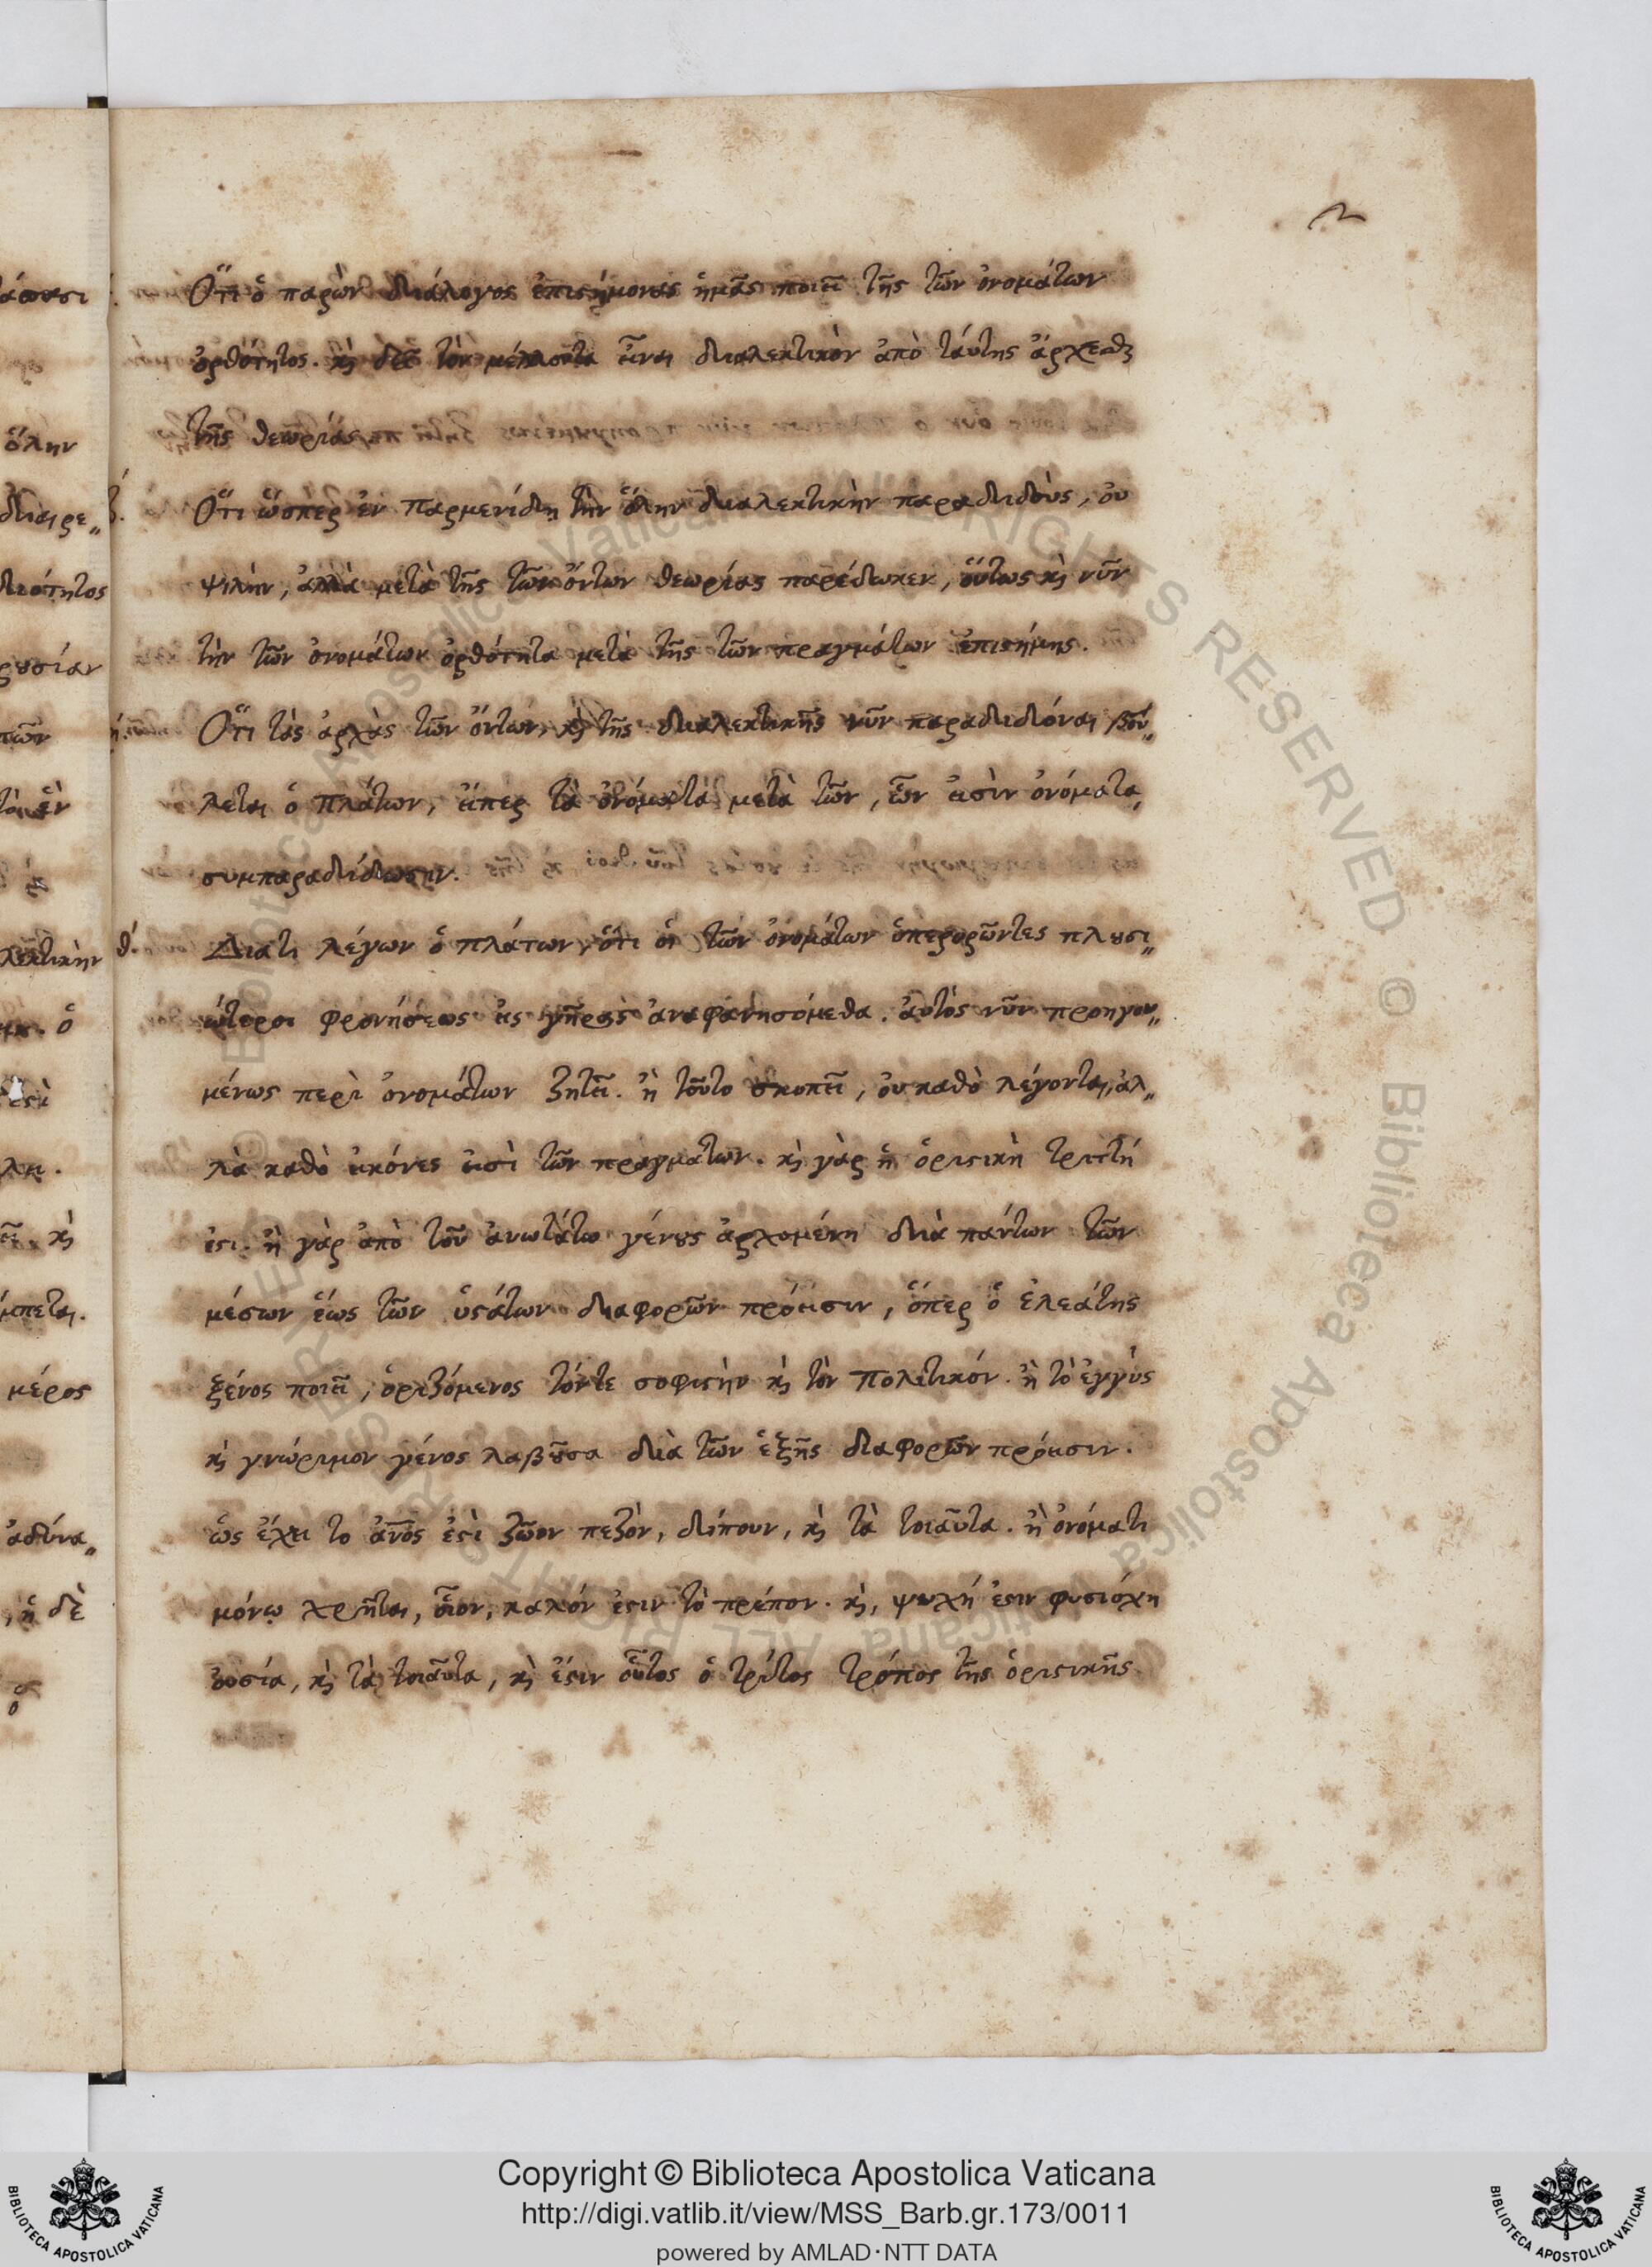 Ὅτι ὁ παρὼν διάλογος ἐπιστήμονας ἡμᾶς ποιεῖ τῆς τῶν ὀνομάτων
ὀρθότητος. καὶ δεῖ τὸν μέλλοντα εἶναι διαλεκτικὸν ἀπὸ ταύτης ἄρχεσθαι
τῆς θεωρίας.
Ὅτι ὥσπερ ἐν Παρμενίδη τὴν ὅλην διαλεκτικὴν παραδιδοὺς, οὐ
ψιλὴν, ἀλλὰ μετὰ τῆς τῶν ὄντων θεωρίας παρέδωκεν, οὕτως καὶ νῦν
τὴν τῶν ὀνομάτων ὀρθότητα μετὰ τῆς τῶν πραγμάτων ἐπιστήμης.
Ὅτι τὰς ἀρχὰς τῶν ὄντων, καὶ τῆς διαλεκτικῆς νῦν παραδιδόναι βού„
λεται ὁ πλάτων, εἴπερ τὰ ὀνόματα μετὰ τῶν, ὧν εἰσὶν ὀνόματα,
συμπαραδίδωσιν.
θ´. Διατι λέγων ὁ πλάτων, ὅτι οἱ τῶν ὀνομάτων ὑπερορῶντες πλουσι„
ώτεροι φρονήσεως εἰς γῆρας ἀναφανησόμεθα. αὐτὸς νῦν προηγου„
μένως περὶ ὀνομάτων ζητεῖ. ἢ τοῦτο σκοπεῖ, οὐ καθὸ λέγονται, ἀλ„
λὰ καθὸ εἰκόνες εἰσὶ τῶν πραγμάτων. καὶ γὰρ ἡ ὁριστικὴ τριττή
ἐστι. ἢ γὰρ ἀπὸ τοῦ ἀνωτάτω γένους ἀρχομένη διὰ πάντων τῶν
μέσων ἕως τῶν ὑστάτων διαφορῶν πρόεισιν, ὅπερ ὁ ἐλεάτης
ξένος ποιεῖ, ὁριζόμενος τόντε σοφιστὴν καὶ τὸν Πολιτικόν. ἢ τὸ ἐγγὺς
καὶ γνώριμον γένος λαβοῦσα διὰ τῶν ἑξῆς διαφορῶν πρόεισιν.
ὡς ἔχει το ἄνος ἐστὶ ζῶον πεζὸν, δίπουν, καὶ τὰ τοιαῦτα. ἢ ὀνόματι
μόνῳ χρῆται, οἷον, καλόν ἐστιν τὸ πρέπον. καὶ, ψυχή ἐστιν φυσιόχη
οὐσία, καὶ τὰ τοιαῦτα, καὶ ἔστιν οὗτος ὁ τρίτος τρόπος τῆς ὁριστικῆς
Copyright © Biblioteca Apostolica Vaticana
http://digi.vatlib.it/view/MSS_Barb.gr.173/0011
powered by AMLAD·NTT DATA
BIBLIOTECA APOSTOLICA VATICANA
BIBLIOTECA APOSTOLICA VATICANA